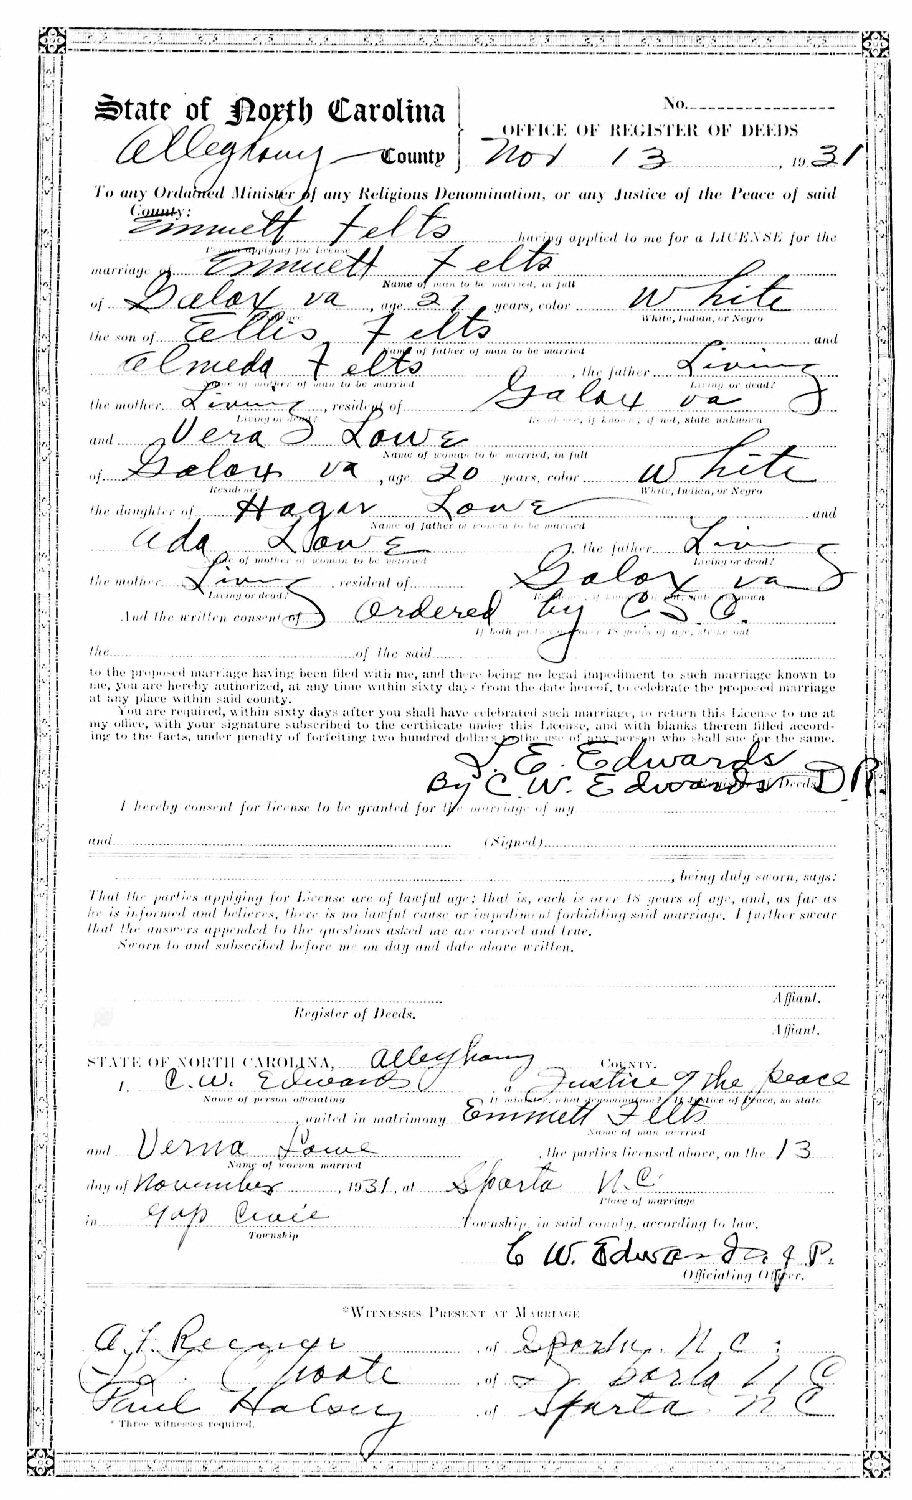 State of North Carolina
No.
Alleghany County
OFFICE OF REGISTER OF DEEDS
Nov 13, 1931
To any Ordained Minister of any Religious Denomination, or any Justice of the Peace of said
County:
Emmett Felts having applied to me for a LICENSE for the
Person applying for license
marriage of Emmett Felts
Name of man to be married, in full
of Galax va, age 21 years, color White
White, Indian, or Negro
the son of Ellis Felts and
Name of father of man to be married
Almeda Felts, the father Living
Name of mother of man to be married Living or dead?
the mother Living, resident of Galax va
Living or dead? Residence, if known, if not, state unknown
and Vera Lowe
Name of woman to be married, in full
of Galax va, age 20 years, color White
Residence White, Indian, or Negro
the daughter of Hagar Lowe and
Name of father of woman to be married
Ada Lowe, the father Living
Name of mother of woman to be married Living or dead?
the mother Living, resident of Galax va
Living or dead?
And the written consent of Ordered by C.S.C.
If both parties are over 18 years of age, strike out
the of the said
to the proposed marriage having been filed with me, and there being no legal impediment to such marriage known to
me, you are hereby authorized, at any time within sixty days from the date hereof, to celebrate the proposed marriage
at any place within said county.
You are required, within sixty days after you shall have celebrated such marriage, to return this License to me at
my office, with your signature subscribed to the certificate under this License, and with blanks therein filled accord-
ing to the facts, under penalty of forfeiting two hundred dollars to the use of any person who shall sue for the same.
S. E. Edwards
By C. W. Edwards D.R.
I hereby consent for license to be granted for the marriage of my
and (Signed)
, being duly sworn, says:
That the parties applying for License are of lawful age; that is, each is over 18 years of age, and, as far as
he is informed and believes, there is no lawful cause or impediment forbidding said marriage. I further swear
that the answers appended to the questions asked me are correct and true.
Sworn to and subscribed before me on day and date above written.
Affiant.
Register of Deeds.
Affiant.
STATE OF NORTH CAROLINA, Alleghany COUNTY.
I, C. W. Edwards a Justice of the peace
Name of person officiating If minister, what denomination? If Justice of Peace, so state
, united in matrimony Emmett Felts
Name of man married
and Verna Lowe, the parties licensed above, on the 13
Name of woman married
day of November, 1931, at Sparta N.C.
Place of marriage
in Gap Civil Township, in said county, according to law.
Township
C W. Edwards J P.
Officiating Officer.
*WITNESSES PRESENT AT MARRIAGE
A. F. of Sparta, N.C.
Choate of Sparta N C
Paul Halsey of Sparta N C
* Three witnesses required.